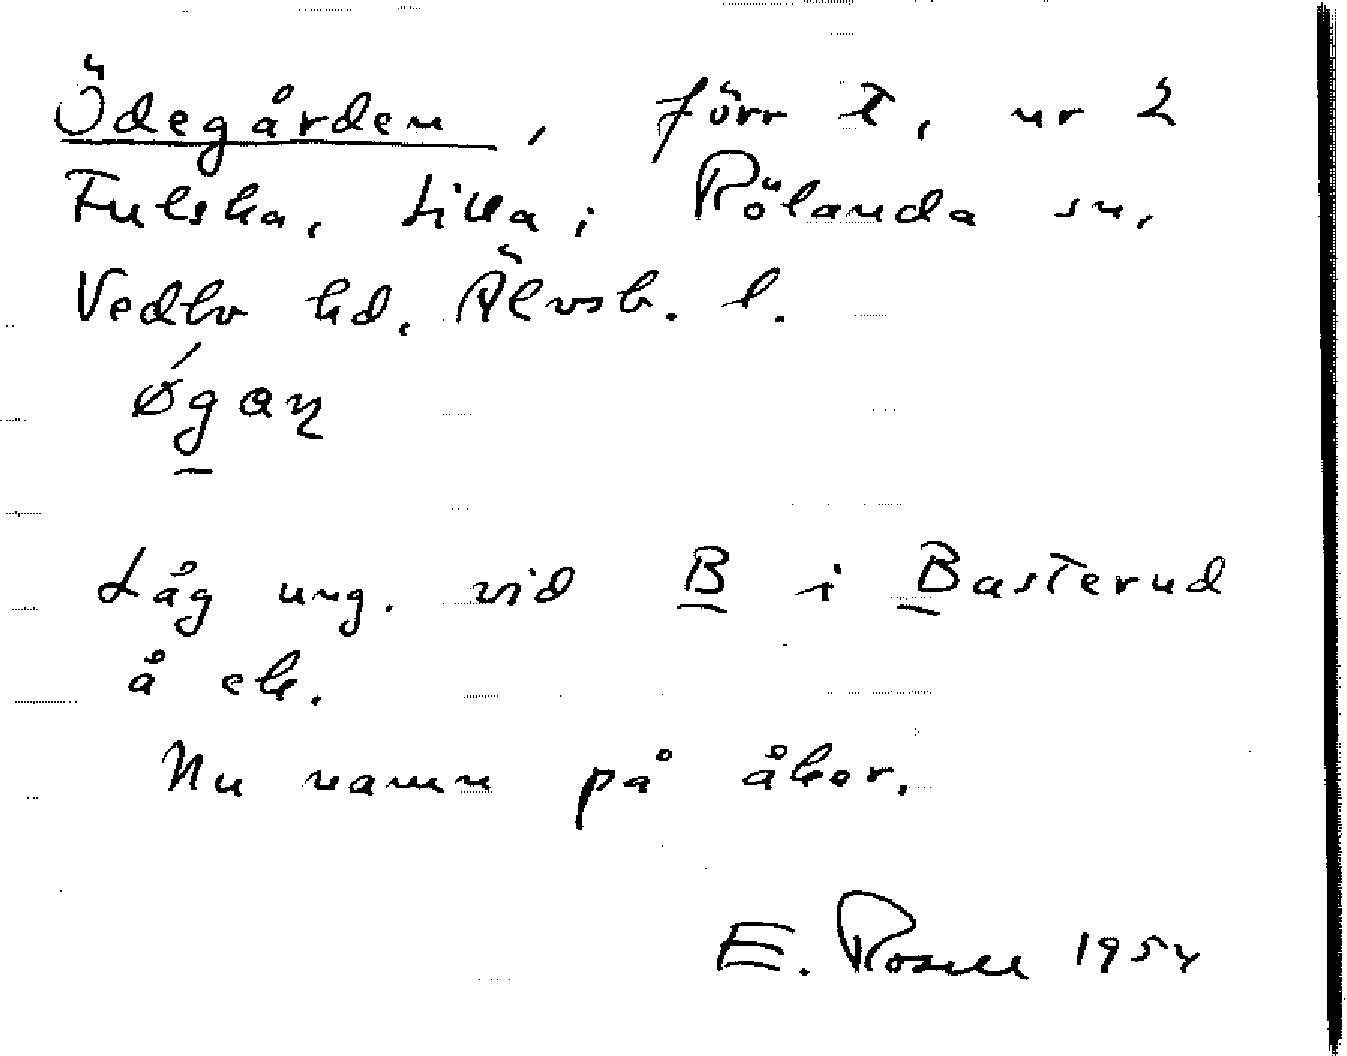 Ödegården, förr t, nr 2
Fulska, Lilla; Rölanda sn,
Vedbo hd, Älvsb. l.
Låg ung. vid B i Basterud
å ek.
Nu namn på åker.
E. Rosell 1954